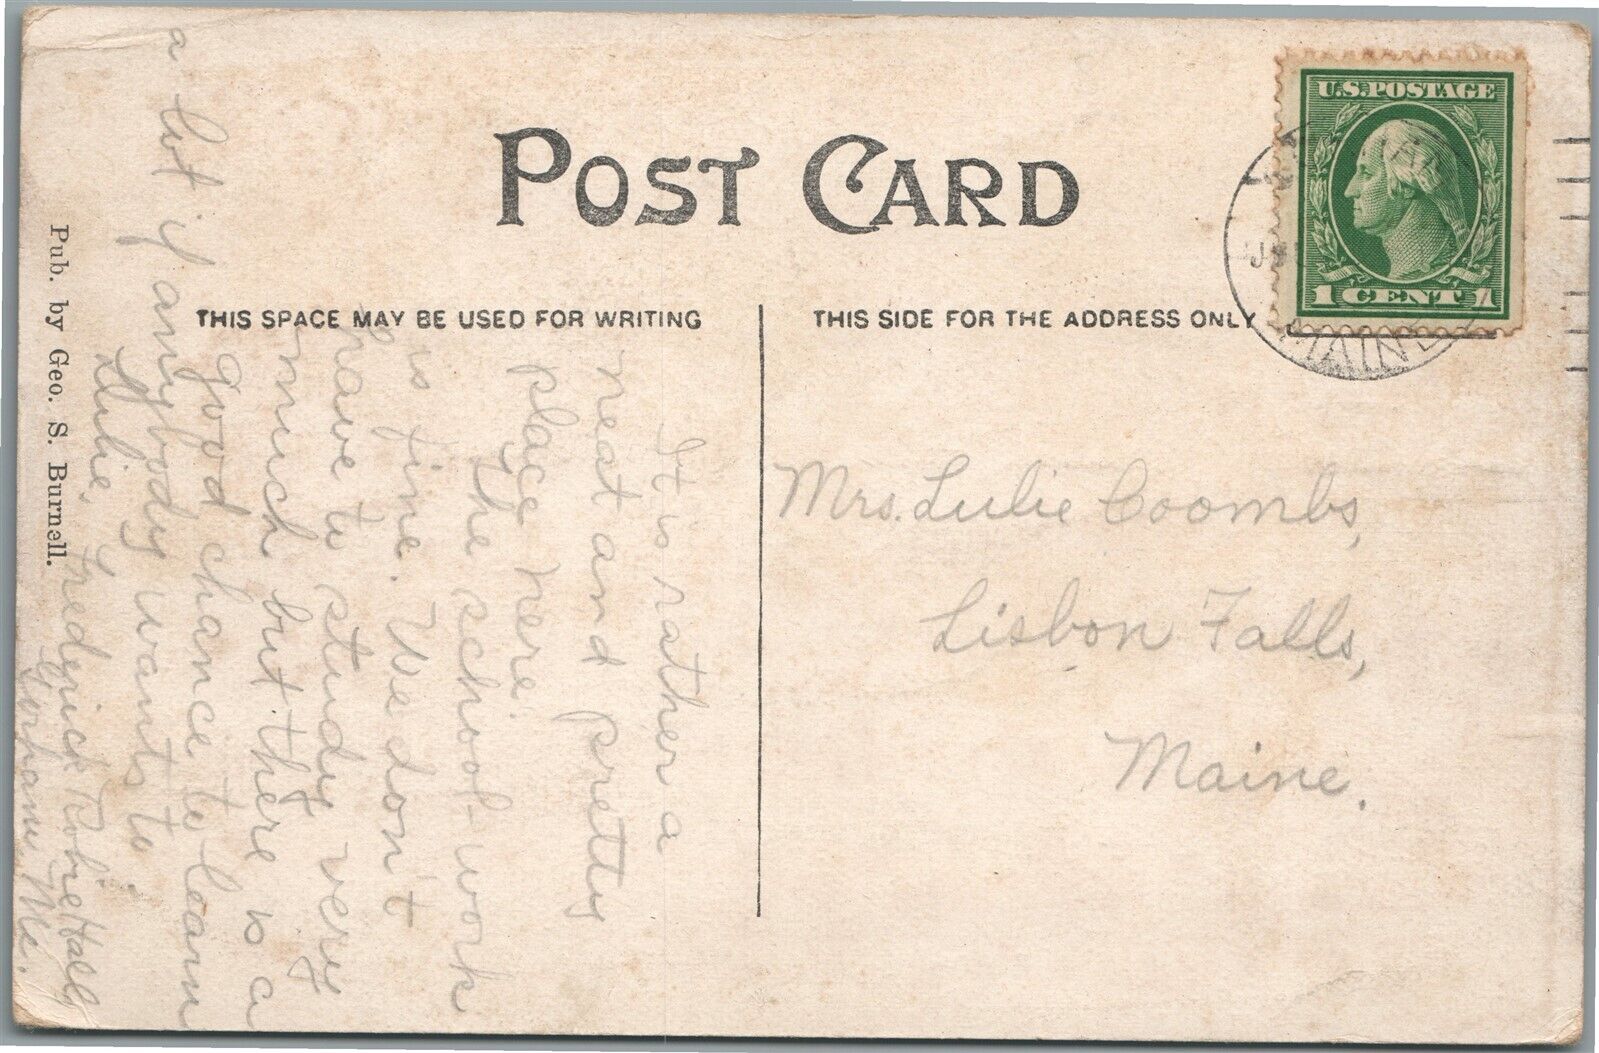 POST CARD
THIS SPACE MAY BE USED FOR WRITING
THIS SIDE FOR THE ADDRESS ONLY
U.S. POSTAGE
1 CENT 1
MAINE
Pub. by Geo. S. Burnell.
It is rather a
neat and pretty
place here.
The school-work
is fine. We don't
have to study very
much but there is a
good chance to learn
a lot if anybody wants to.
Lulie,
Frederick Robie Hall,
Gorham, Me.
Mrs. Lulie Coombs,
Lisbon Falls,
Maine.